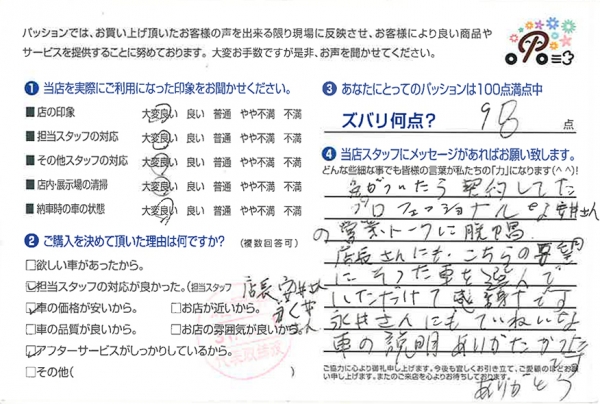 パッションでは、お買い上げ頂いたお客様の声を出来る限り現場に反映させ、お客様により良い商品や
サービスを提供することに努めております。大変お手数ですが是非、お声を聞かせてください。
❶ 当店を実際にご利用になった印象をお聞かせください。
■店の印象 大変良い 良い 普通 やや不満 不満
■担当スタッフの対応 大変良い 良い 普通 やや不満 不満
■その他スタッフの対応 大変良い 良い 普通 やや不満 不満
■店内・展示場の清掃 大変良い 良い 普通 やや不満 不満
■納車時の車の状態 大変良い 良い 普通 やや不満 不満
❷ ご購入を決めて頂いた理由は何ですか? (複数回答可)
□欲しい車があったから。
□担当スタッフの対応が良かった。(担当スタッフ 店長、安井さん
□車の価格が安いから。 □お店が近いから。
□車の品質が良いから。 □お店の雰囲気が良いから。
□アフターサービスがしっかりしているから。
□その他(
❸ あなたにとってのパッションは100点満点中
ズバリ何点? 98 点
❹ 当店スタッフにメッセージがあればお願い致します。
どんな些細な事でも皆様の言葉が私たちの「力」になります(^^)!
気がついたら 契約してた
プロフェッショナルな安井さん
の営業トークに脱帽
店長さんにも、こちらの要望
にそった車を選んで
いただけて感謝です
永井さんにもていねいな
車の説明ありがたかったです
ご協力に心より御礼申し上げます。今後も宜しくお引き立て、ご愛顧のほどお願
い申し上げます。またのご来店を心よりお待ちしております。
ありがとう